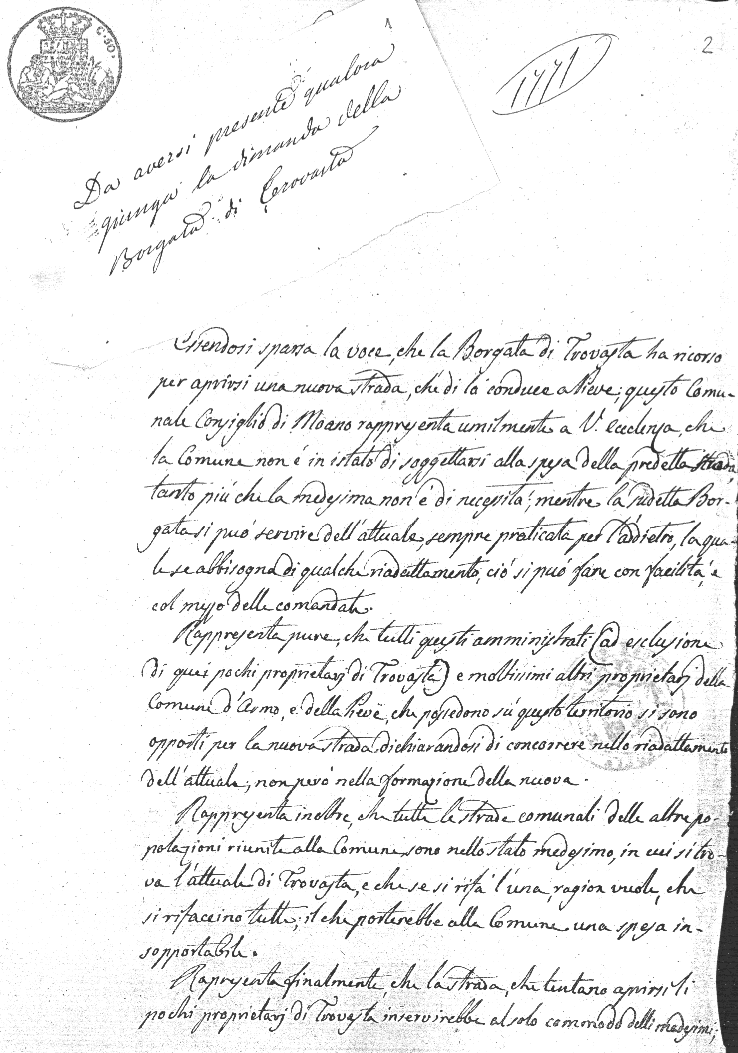 C. 50.
1
2
1771
Da aversi presente qualora
giunga la dimanda della
Borgata di Terovasta
Essendosi sparsa la voce, che la Borgata di Trovasta ha ricorso
per aprirsi una nuova strada, che di là conduce a Pieve; questo Comu-
nale Consiglio di Moano rappresenta umilmente a V. Eccellenza, che
la Comune non é in istato di soggettarsi alla spesa della predetta strada,
tanto più che la medesima non é di necesità; mentre la sudetta Bor-
gata si può servire dell'attuale, sempre praticata per l'addietro, la qua-
le se abbisogna di qualche riadattamento, ciò si può fare con facilità, e
col mezzo delle comandate.
Rappresenta pure, che tutti questi amministrati (ad esclusione
di quei pochi proprietarj di Trovasta) e moltissimi altri proprietarj della
Comune d'Armo, e della Pieve, che possedono sù questo territorio si sono
opposti per la nuova strada, dichiarandosi di concorrere nello riadattamento
dell'attuale, non però nella formazione della nuova.
Rappresenta inoltre, che tutte le strade comunali delle altre po-
polazioni riunite alla Comune, sono nello stato medesimo, in cui si tro-
va l'attuale di Trovasta, e che se si rifà l'una, ragion vuole, che
si rifaccino tutte; il che porterebbe alla Comune una spesa in-
sopportabile.
Rapresenta finalmente, che la strada, che tentano aprirsi li
pochi proprietarj di Trovasta inservirebbe al solo commodo delli medesimi;